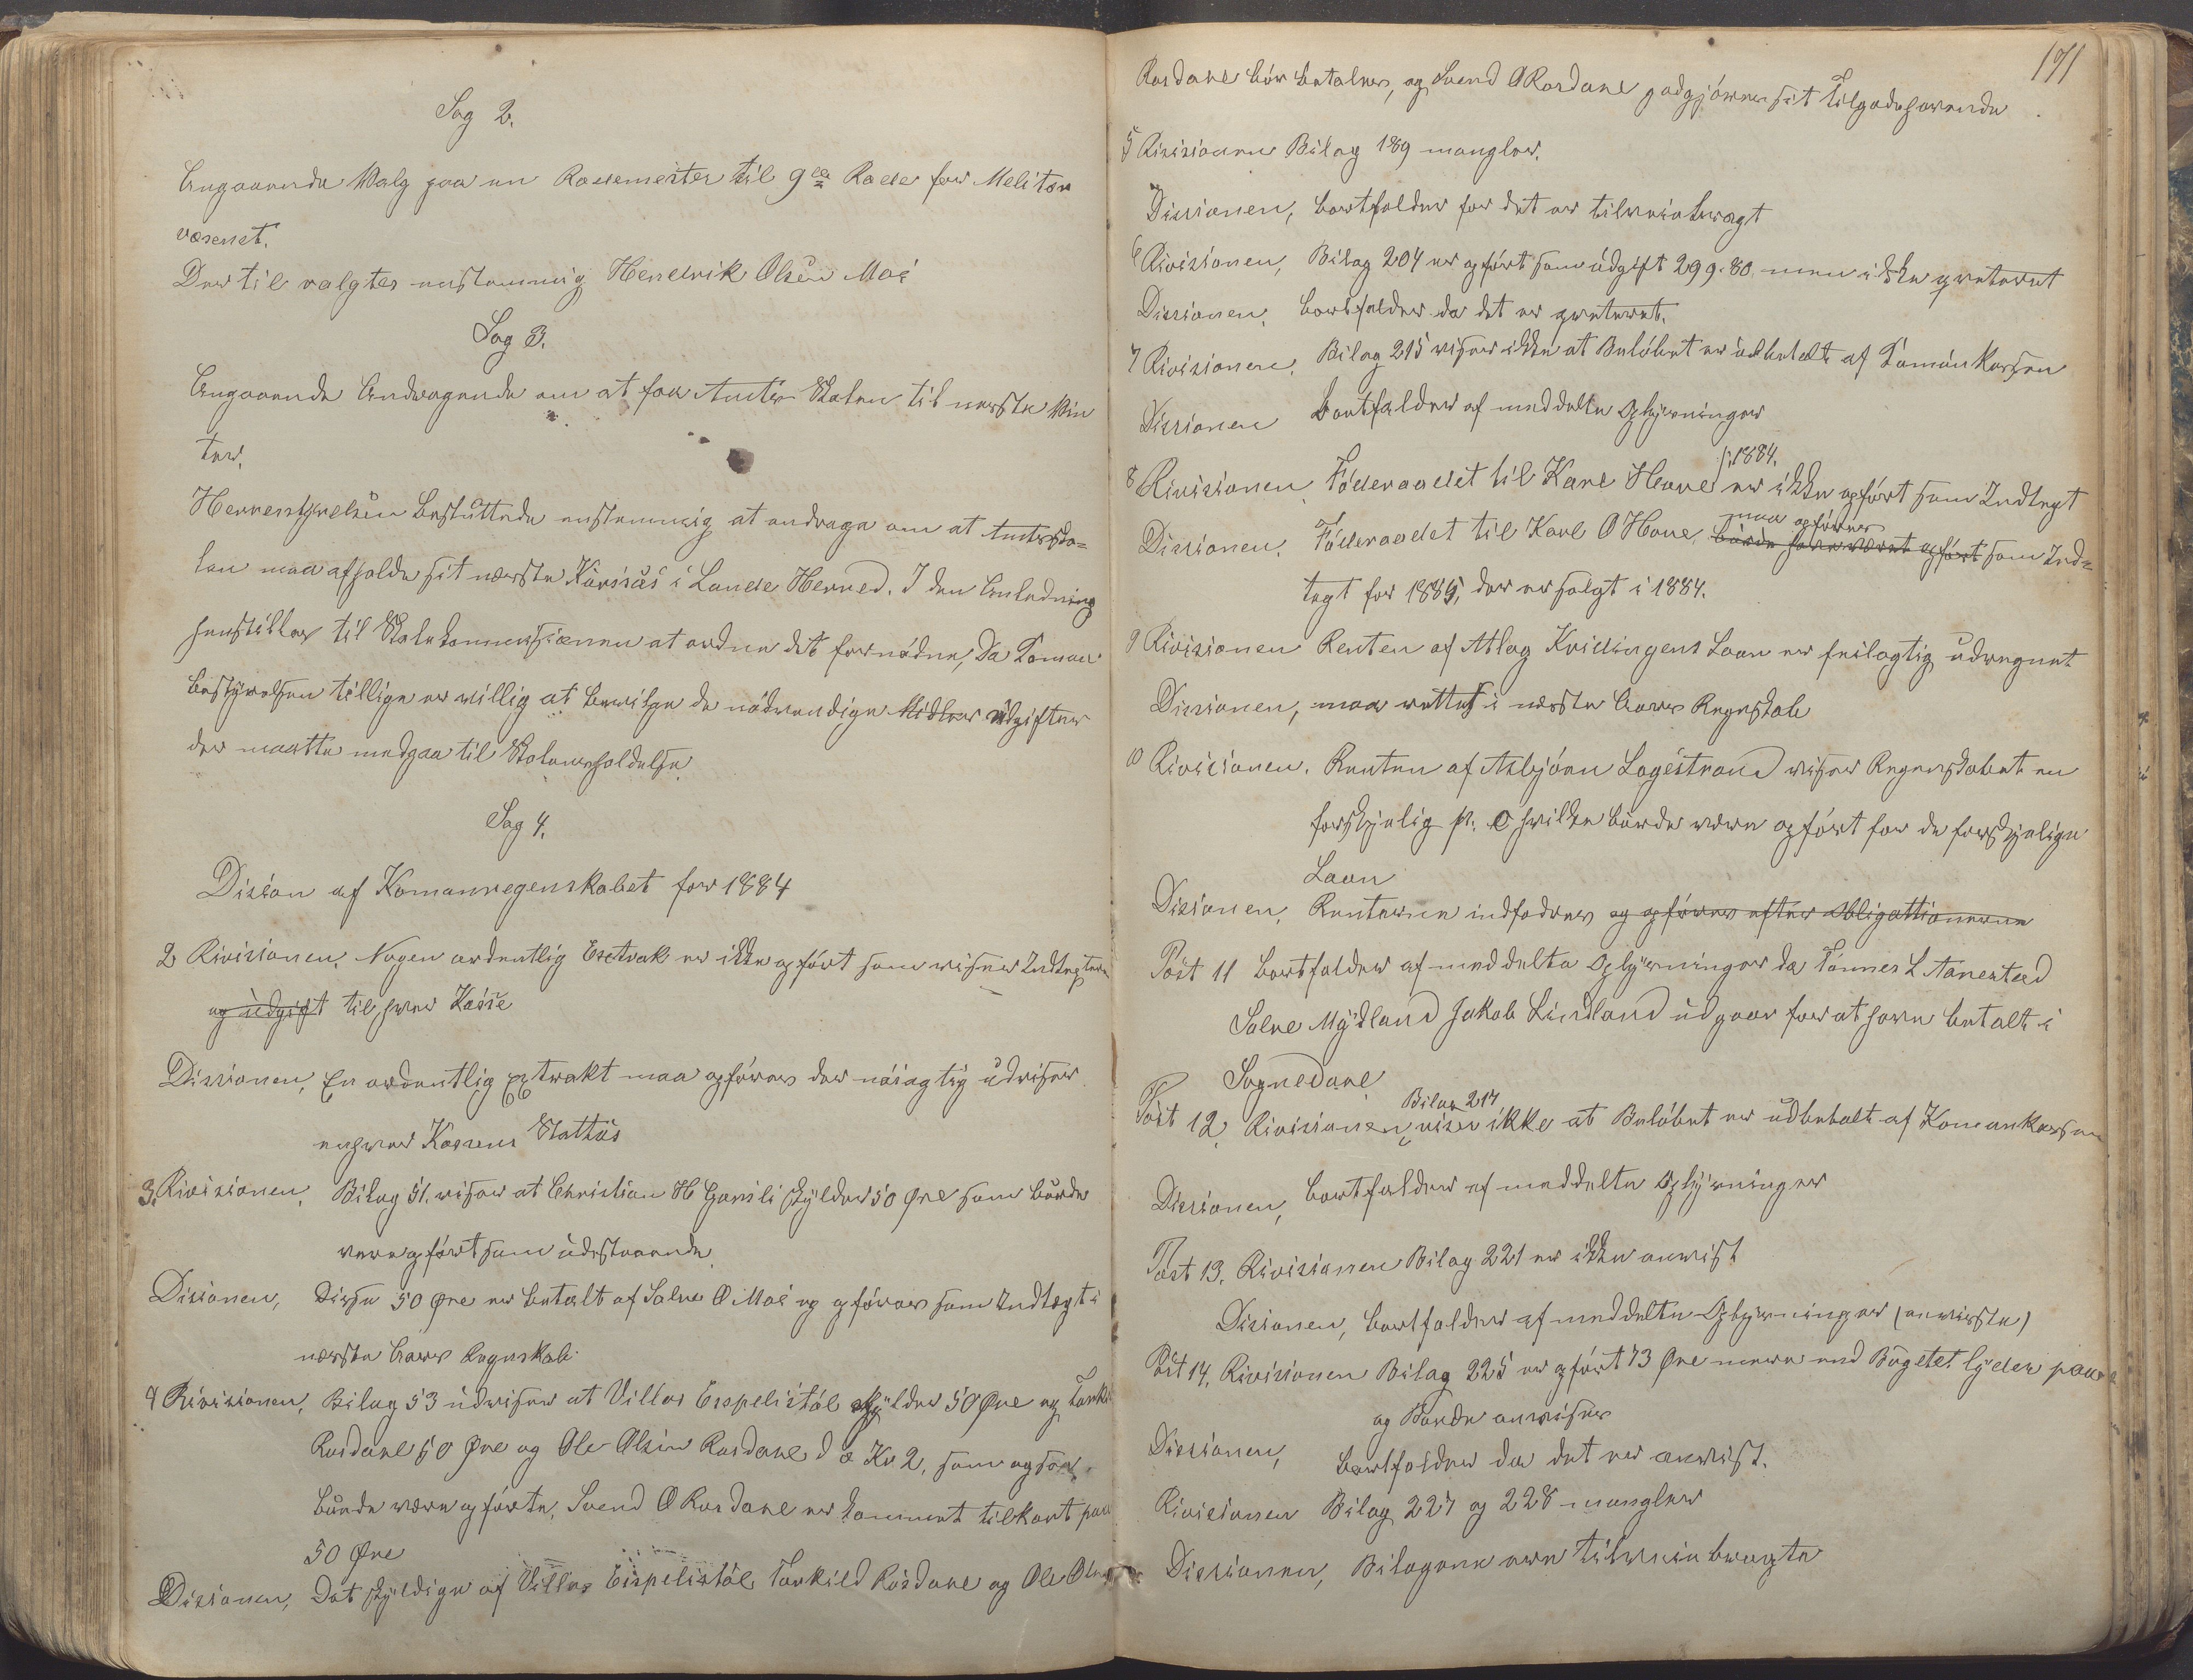 Sag 2.
Angaaende Walg paa en Rodemester til 9de Rode for Melitær
væsenet.
Der til valgtes enstemmig Hendrik Olsen Moi
Sag 3.
Angaaende Andragende om at faa Amts Skolen til neste Win
ter.
Herrestyrelsen besluttede enstemmig at andrage om at Amtssko=
len maa afholde sit neste Kursus i Lunde Herred. I den Anledning
henstilles til Skolekommissionen at ordne det fornødne, Da Komun
bestyrelsen tillige er willig at bewilge de nødvendige Midler Udgifter
der maatte medgaa til Skolens holdelse.
Sag 4.
Dision af Komunregenskabet for 1884
2 Rivisionen. Nogen ordentlig Exstrak er ikke opført som wiser Indtegten
og udgift til hver Kasse
Dissionen, En ordentlig Extrakt maa opføres der nøiagtig udviser
enhver Kassens Stattus
3. Rivisionen. Bilag 51. wiser at Christian H Gursli skylder 50 Øre som burde
være opført som udestaaende.
Disionen, Disse 50 Øre er betalt af Salve O Moi og opføres som Indtegt i
næste Aars Regnskab.
4 Rivisionen, Bilag 53 udwiser at Villas Eispelistøl skylder 50 Øre og Torkil
Rusdane 50 Øre og Ole Olsen Rusdane d o Kr 2, som ogsaa
burde være opførte, Svend O Rusdane er kommet tilkort paa
50 Øre
Disionen, Det skyldige af Villas Eispelistøl Torkild Rusdane og Ole Olsen
171
Rusdane bør betales, og Svend O Rusdane godgjøres sit Tilgodehavende.
5 Rivisionen Bilag 189 mangler.
Disionen, bortfalder for det er tilveiebragt
6 Rivisionen, Bilag 204 er opført som udgift 299.80 men ikke qvieteret
Dissionen. bortfalder da det er qvieteret.
7 Rivisionen. Bilag 215 wiser ikke at Beløbet er udbetalt af Komunkassen
Disionen bortfalder af meddelte Oplysninger
i 1884.
8 Rivisionen. Føderaadet til Karl Hove er ikke opført som Indtegt
maa opføres
Disionen. Føderaadet til Karl O Hove, burde have været opført som Ind=
tegt for 1885, der er solgt i 1884.
9 Rivisionen Renten af Atlag Kvillingens Laan er feilagtig udregnet
Disionen, maa rettes i næste Aars Regnskab
10 Rivisionen. Renten af Asbjørn Løgestrand wiser Regnskabet en
forskjelig pr. C hvilke burde være opført for de forskjelige
Laan
Disionen. Renterne indfodres og opføres efter Obligattionerne
Post 11 bortfalder af meddelte Oplysninger da Tønnes L Aanested
Salve Mydland Jakob Lindland udgaar for at have betalt i
Sognedane
Bilag 217
Post 12. Rivisionen viser ikke at Beløbet er udbetalt af Komunkassen
Disionen, bortfalder af meddelte Oplysninger
Post 13. Rivisionen Bilag 221 er ikke anvist
Disionen, bortfalder af meddelte Oplysninger (anviste)
Post 14. Rivisionen Bilag 225 er opført 73 Øre mere end Bugetet lyder paa
og Burde anvises
Disionen, bortfalder da det er anvist.
Rivisionen Bilag 227 og 228 mangler
Disionen, Bilagene ere tilveiebragte